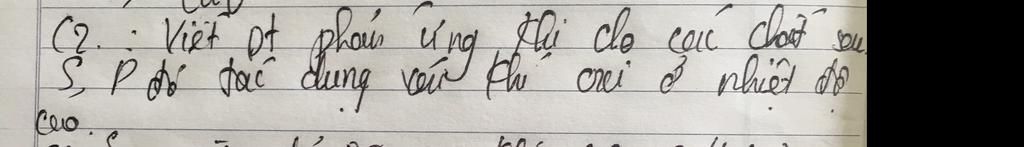 C2. : Viết pt phản ứng khi cho các chất sau
S, P đỏ tác dụng với khí oxi ở nhiệt độ
cao.